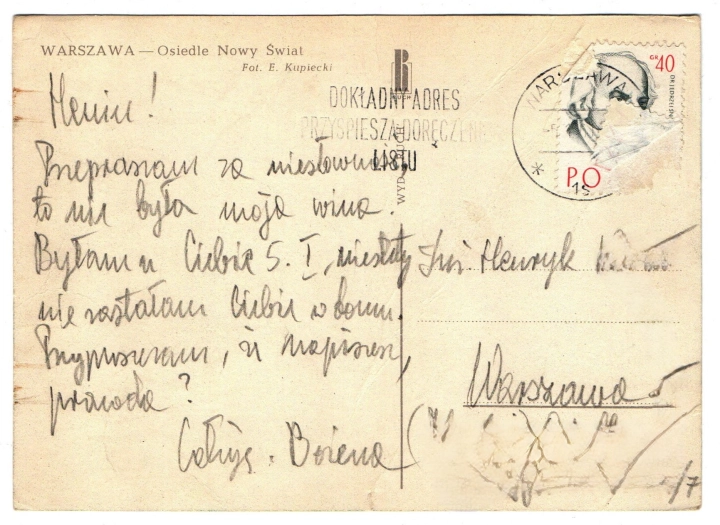 WARSZAWA — Osiedle Nowy Świat
Fot. E. Kupiecki
DOKŁADNY ADRES
PRZYSPIESZA DORĘCZENIE
LISTU
WARSZAWA
GR 40
PO
WYD. RUCH
Heniu!
Przepraszam za niesłowność,
to nie była moja wina.
Byłam u Ciebie 5. I, niestety
nie zastałam Ciebie w domu.
Przypuszczam, że napiszesz,
prawda?
Całuję. Bożena
Inż. Henryk
Warszawa
/7